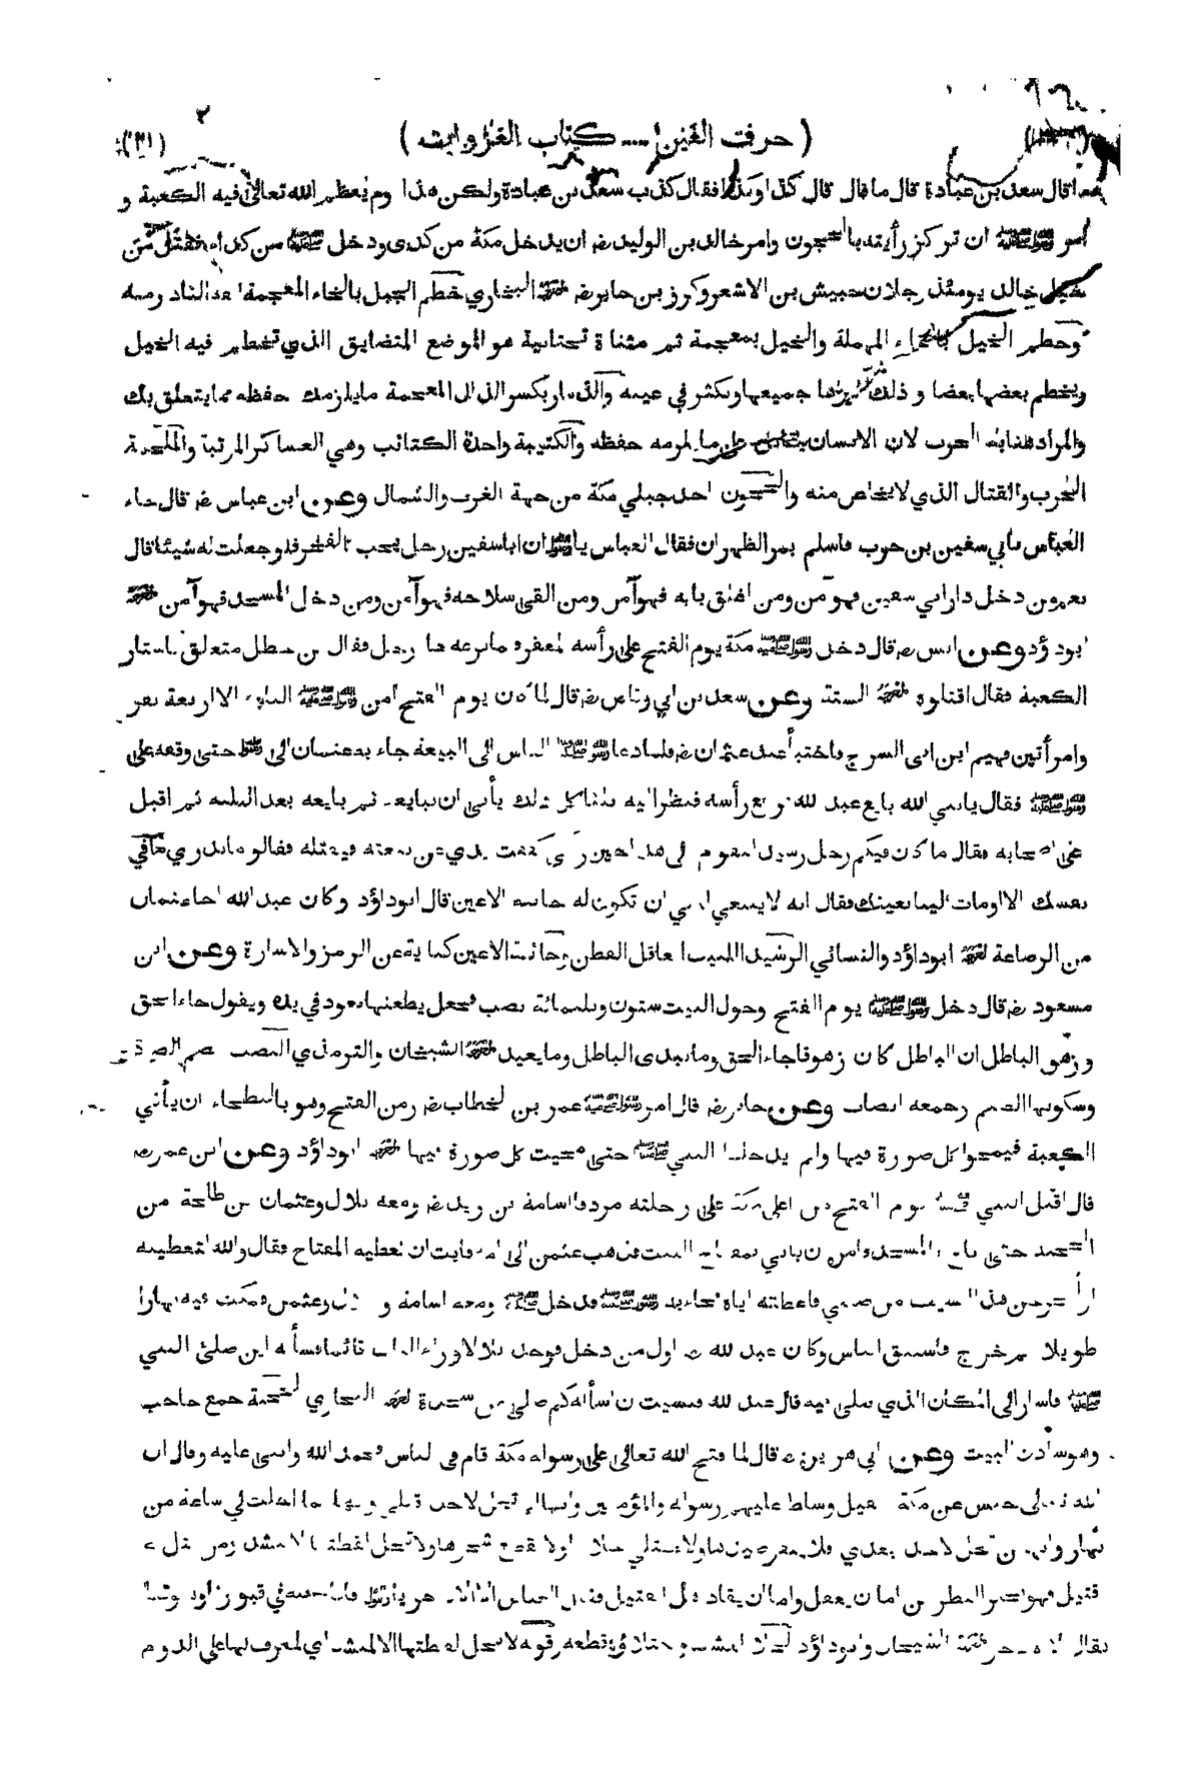 ( حرف الغين .... كتاب الغزوات )
ما قال سعد بن عبادة قال ما قال قال كذا وكذا فقال كذب سعد بن عبادة ولكن هذا يوم يعظم الله تعالى فيه الكعبة و
امر ﷺ ان تركز رأيته بالحجون وامر خالد بن الوليد رضـ ان يدخل مكة من كدى ودخل ﷺ من كداء فقتل من
خيل خالد يومئذ رجلان حبيش بن الاشعر وكرز بن جابر رضـ البخاري خطم الجبل بالخاء المعجمة
وحطم الخيل بالحاء المهملة والخيل بمعجمة ثم مثناة تحتانية هو الموضع المتضايق الذي تخطم فيه الخيل
ويخطم بعضها بعضا و ذلك جميعها وتكثر في عينه والذمار بكسر الذال المعجمة ما يلزمك حفظه مما يتعلق بك
والمراد هنا به الحرب لان الانسان يقاتل على ما يلزمه حفظه والكتيبة واحدة الكتائب وهي العساكر المرتبة والملحمة
الحرب والقتال الذي لا يخلص منه والحجون احد جبلي مكة من جهة الغرب والشمال وعن ابن عباس رضـ قال جاء
العباس بابي سفين بن حرب فاسلم بمر الظهران فقال العباس يا ان ابا سفين رجل يحب الفخر فلو جعلت له شيئا قال
نعم من دخل دار ابي سفين فهو آمن ومن اغلق بابه فهو آمن ومن القى سلاحه فهو آمن ومن دخل المسجد فهو آمن
ابوداؤد وعن انس رضـ قال دخل ﷺ مكة يوم الفتح على رأسه المغفر فلما نزعه جاء رجل فقال ابن خطل متعلق باستار
الكعبة فقال اقتلوه الستة وعن سعد بن ابي وقاص رضـ قال لما كان يوم الفتح امن ﷺ الناس الا اربعة نفر
وامرأتين فيهم ابن ابى السرح فاختبأ عند عثمان رضـ فلما دعا ﷺ الناس الى البيعة جاء به عثمان الى ﷺ حتى وقفه على
ﷺ فقال يا نبي الله بايع عبد الله فرفع رأسه فنظر اليه ثلثا كل ذلك يأبى ان يبايعه ثم بايعه بعد الثلثة ثم اقبل
على اصحابه فقال ما كان فيكم رجل رشيد يقوم الى هذا حين رآني كففت يدي عن بيعته فيقتله فقالو ما ندري ما في
نفسك الا اومأت الينا بعينك فقال انه لا ينبغي لنبي ان تكون له خائنة الاعين قال ابوداؤد وكان عبد الله اخا عثمان
من الرضاعة ابوداؤد والنسائي الرشيد اللبيب العاقل الفطن وخائنة الاعين كناية عن الرمز والاشارة وعن ابن
مسعود رضـ قال دخل ﷺ يوم الفتح وحول البيت ستون وثلثمائة نصب فجعل يطعنها بعود في يده ويقول جاء الحق
وزهق الباطل ان الباطل كان زهوقا جاء الحق وما يبدى الباطل وما يعيد الشيخان والترمذي النصب بضم الصاد
وسكونها الصنم وجمعه انصاب وعن جابر رضـ قال امر ﷺ عمر بن الخطاب رضـ زمن الفتح وهو بالبطحاء ان يأتي
الكعبة فيمحوا كل صورة فيها ولم يدخلها النبي ﷺ حتى محيت كل صورة فيها ابوداؤد وعن ابن عمر رضـ
قال اقبل النبي ﷺ يوم الفتح من اعلى مكة على راحلته مردفا اسامة بن زيد رضـ ومعه بلال وعثمان بن طلحة من
الحجبة حتى اناخ في المسجد وامره ان ياتي بمفتاح البيت فذهب عثمن الى امه فابت ان تعطيه المفتاح فقال والله لتعطينه
او ليخرجن هذا السيف من صلبي فاعطته اياه فجاء به ﷺ فدخل ﷺ ومعه اسامة و بلال وعثمن فمكث فيه نهارا
طويلا ثم خرج فاستبق الناس وكان عبد الله رضـ اول من دخل فوجد بلالا وراء الباب قائما فسأله اين صلى النبي
ﷺ فاشار الى المكان الذي صلى فيه قال عبد الله فنسيت ان اسأله كم صلى من سجدة البخاري الحجبة جمع حاجب
وهو سادن البيت وعن ابي هريرة رضـ قال لما فتح الله تعالى على رسوله مكة قام في الناس فحمد الله واثنى عليه وقال ان
الله تعالى حبس عن مكة الفيل وسلط عليها رسوله والمؤمنين وانها لم تحل لاحد قبلي وانما احلت لي ساعة من
نهار وانها لن تحل لاحد بعدي فلا ينفر صيدها ولا يختلي خلاها ولا يقطع شجرها ولا تحل لقطتها الا لمنشد ومن قتل له
قتيل فهو بخير النظرين اما ان يعقل واما ان يقاد اهل القتيل فقال العباس الا الاذخر يا ﷺ فانا نجعله في قبورنا وبيوتنا
فقال الا الاذخر الشيخان وابوداؤد وقوله لا تحل لقطتها الا لمنشد اي لمعرف بها على الدوم